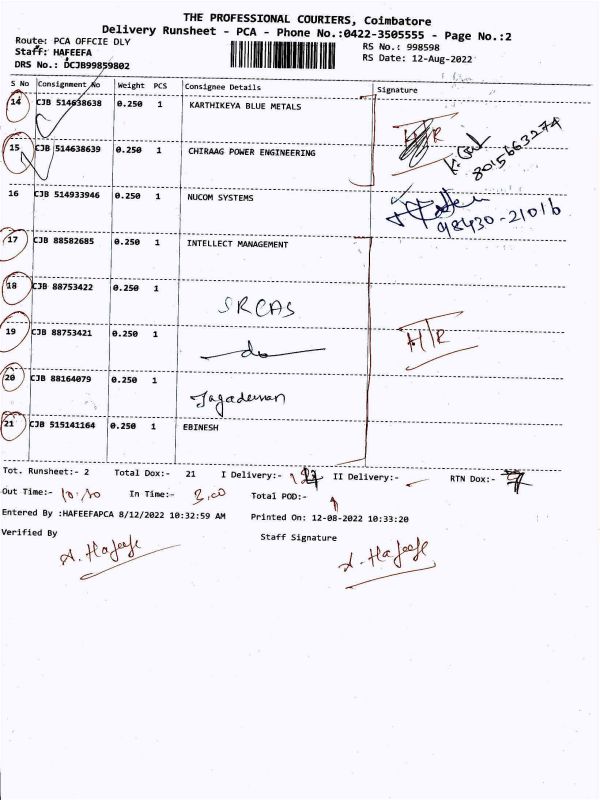 THE PROFESSIONAL COURIERS, Coimbatore
Delivery Runsheet - PCA - Phone No.:0422-3505555 - Page No.:2
Route: PCA OFFCIE DLY
RS No.: 998598
Staff: HAFEEFA
RS Date: 12-Aug-2022
DRS No.: DCJB99859802
S No Consignment No Weight PCS Consignee Details Signature
14 CJB 514638638 0.250 1 KARTHIKEYA BLUE METALS
H/R
15 CJB 514638639 0.250 1 CHIRAAG POWER ENGINEERING
8015663274
16 CJB 514933946 0.250 1 NUCOM SYSTEMS
98430-21016
17 CJB 88582685 0.250 1 INTELLECT MANAGEMENT
18 CJB 88753422 0.250 1 SRCAS
19 CJB 88753421 0.250 1 do H/R
20 CJB 88164079 0.250 1 Jagadeesan
21 CJB 515141164 0.250 1 EBINESH
Tot. Runsheet:- 2 Total Dox:- 21 I Delivery:- II Delivery:- RTN Dox:-
Out Time:- 10.30 In Time:- 3.00 Total POD:-
Entered By :HAFEEFAPCA 8/12/2022 10:32:59 AM Printed On: 12-08-2022 10:33:20
Verified By Staff Signature
A. Hafeefe A. Hafeefe